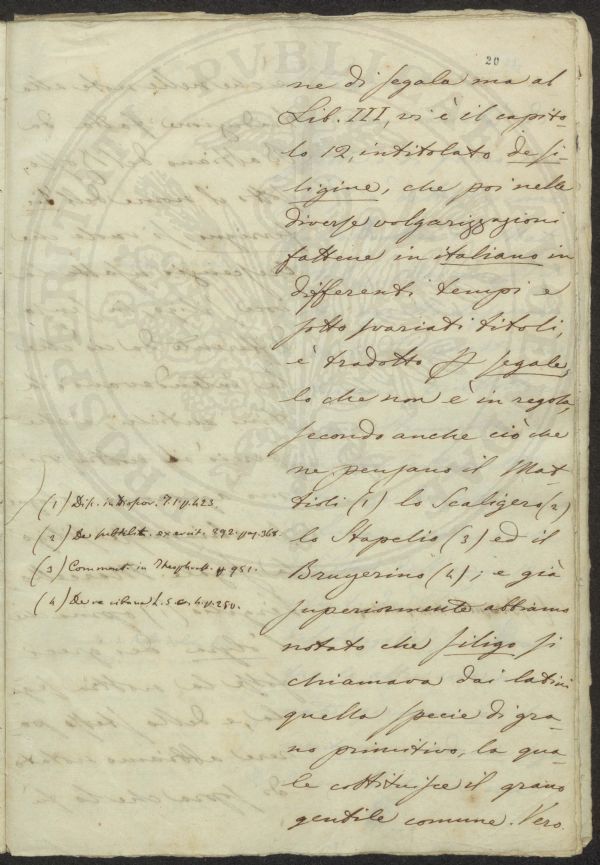 20
ne di segala ma al
Lib. III, vi è il capito-
lo 12, intitolato de si-
ligine, che poi nelle
diverse volgarizzazioni
fattene in italiano in
differenti tempi e
sotto svariati titoli,
è tradotto p segale,
lo che non è in regola,
secondo anche ciò che
ne pensano il Mat-
tioli (1) lo Scaligero (2)
lo Stapelio (3) ed il
Bruyerino (4); e già
superiormente abbiamo
notato che siligo si
chiamava dai latini
quella specie di gra-
no primitivo, la qua-
le costituisce il grano
gentile comune. Vero
(1) Dis. in Dioscor. T. 1 p. 423.
(2) De subtilit. exercit. 292. pag. 368.
(3) Comment. in Theophrast. p. 951.
(4) De re cibaria L. 5 c. 4. p. 250.